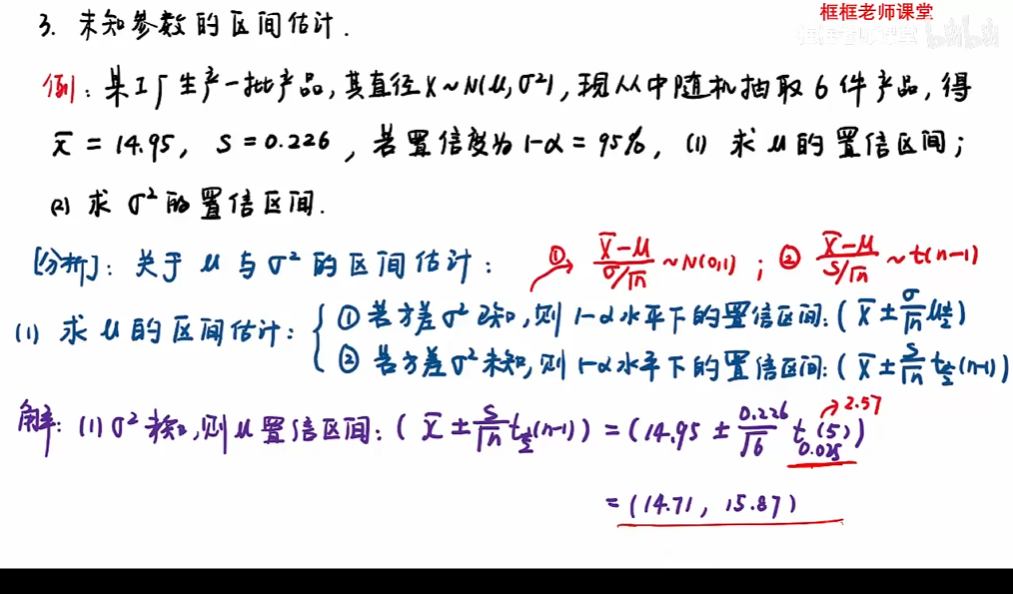 框框老师课堂
3. 未知参数的区间估计.
例: 某工厂生产一批产品,其直径X~N(μ,σ²),现从中随机抽取6件产品,得
x̄ = 14.95, S = 0.226, 若置信度为1-α = 95%, (1) 求μ的置信区间;
(2) 求σ²的置信区间.
[分析]: 关于μ与σ²的区间估计: ① (X̄-μ)/(σ/√n) ~N(0,1) ; ② (X̄-μ)/(S/√n) ~t(n-1)
(1) 求μ的区间估计: { ① 若方差σ²已知,则1-α水平下的置信区间: (X̄ ± σ/√n μ_{α/2})
② 若方差σ²未知,则1-α水平下的置信区间: (X̄ ± S/√n t_{α/2}(n-1))
解: (1) σ²未知,则μ置信区间: (X̄ ± S/√n t_{α/2}(n-1)) = (14.95 ± 0.226/√6 t_{0.025}(5)) → 2.57
= (14.71, 15.87)